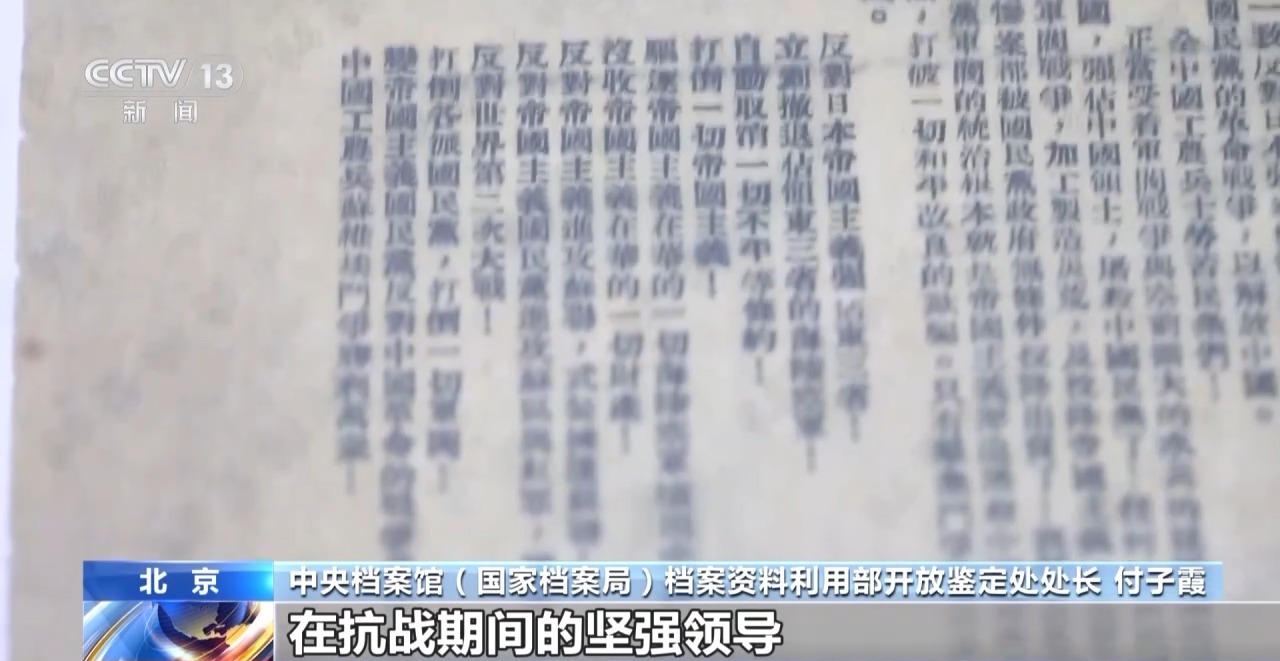 CCTV 13
新闻
一致反對日本
國民黨的革命戰爭，以解放中國。
全中國工農兵士勞苦民衆們！
正當受着軍閥戰爭與空前擴大的水災的
國，强佔中國領土，屠殺中國民衆！
軍閥戰爭，加工製造災荒，及投降帝國主義
慘案都被國民黨政府無條件投降出賣！
黨軍閥的統治根本就是帝國主義
，打破一切和平改良的欺騙。只有
反對日本帝國主義强佔東三省！
立刻撤退佔領東三省的海陸空軍！
自動取消一切不平等條約！
打倒一切帝國主義！
驅逐帝國主義在華的一切海陸空軍
沒收帝國主義在華的一切財產！
反對帝國主義進攻蘇聯，武裝擁護蘇聯！
反對帝國主義國民黨進攻蘇區與紅軍，
反對世界第二次大戰！
打倒各派國民黨，打倒一切軍閥！
帝國主義國民黨反對中國革命的戰爭
中國工農兵蘇維埃鬥爭勝利萬歲！
北京
中央档案馆（国家档案局）档案资料利用部开放鉴定处处长 付子霞
在抗战期间的坚强领导